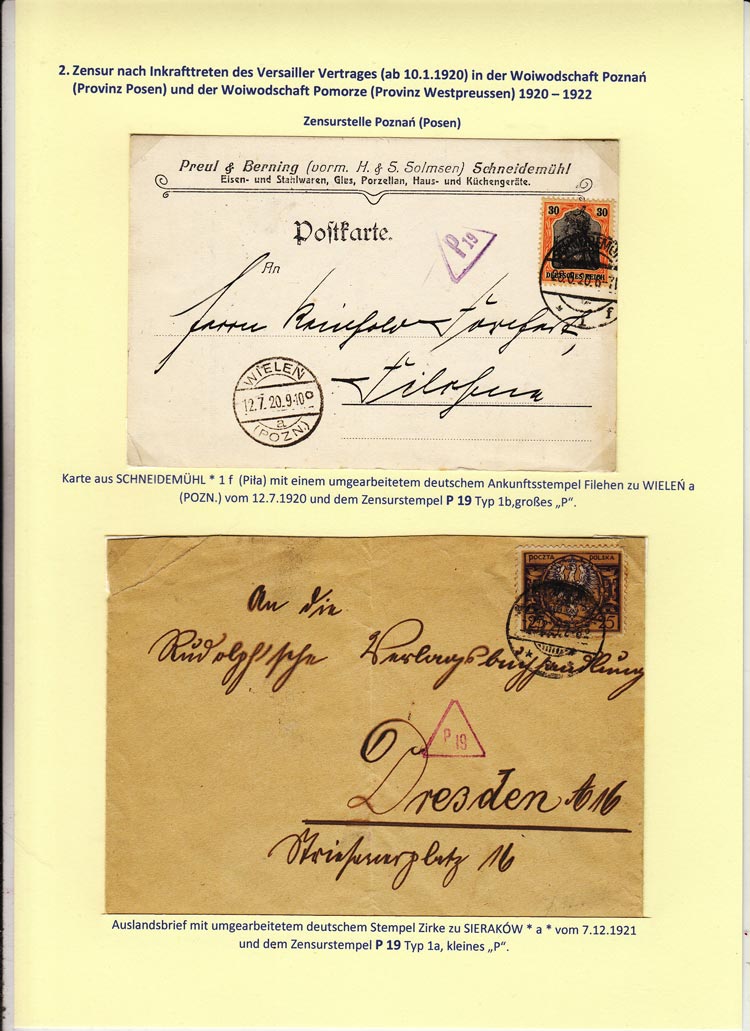 2. Zensur nach Inkrafttreten des Versailler Vertrages (ab 10.1.1920) in der Woiwodschaft Poznań
(Provinz Posen) und der Woiwodschaft Pomorze (Provinz Westpreussen) 1920 – 1922
Zensurstelle Poznań (Posen)
Preul & Berning (vorm. H. & S. Solmsen) Schneidemühl
Eisen- und Stahlwaren, Glas, Porzellan, Haus- und Küchengeräte.
30 30
DEUTSCHES REICH
Postkarte.
P 19
An
Herrn Reinhold
Filehne
WIELEŃ
12.7.20.9-10⁰
a
(POZN.)
Karte aus SCHNEIDEMÜHL * 1 f (Piła) mit einem umgearbeitetem deutschem Ankunftsstempel Filehen zu WIELEŃ a
(POZN.) vom 12.7.1920 und dem Zensurstempel P 19 Typ 1b,großes „P“.
POCZTA POLSKA
25 25
An die
Rudolph'sche Verlagsbuchhandlung
P 19
Dresden A 16
Striesenerplatz 16
Auslandsbrief mit umgearbeitetem deutschem Stempel Zirke zu SIERAKÓW * a * vom 7.12.1921
und dem Zensurstempel P 19 Typ 1a, kleines „P“.